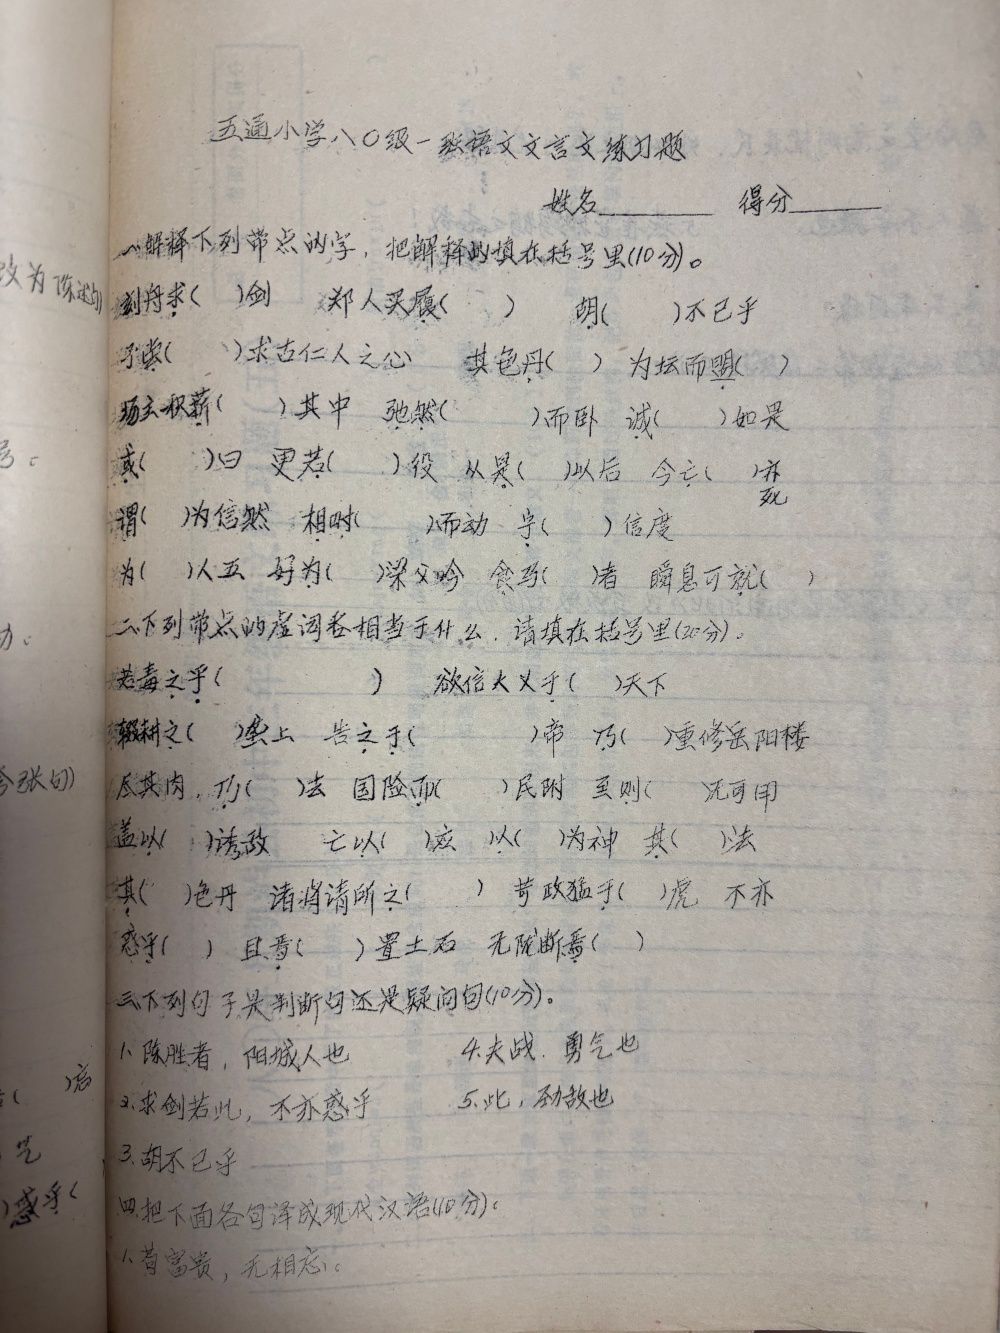 五通小学八〇级一致语文文言文练习题
姓名________ 得分________
一、解释下列带点的字，把解释的填在括号里(10分)。
刻舟求(  )剑 郑人买履(  ) 胡(  )不已乎
予尝(  )求古仁人之心 其色丹(  ) 为坛而盟(  )
场主积薪(  )其中 弛然(  )而卧 诚(  )如是
或(  )曰 更若(  )役 从是(  )以后 今亡(  )亦
死
谓(  )为信然 相时(  )而动 字(  )信度
为(  )人五 好为(  )梁父吟 食马(  )者 瞬息可就(  )
二、下列带点的虚词各相当于什么，请填在括号里(20分)。
若毒之乎(  ) 欲信大义于(  )天下
辍耕之(  )垄上 告之于(  )帝 乃(  )重修岳阳楼
尽其肉，乃(  )去 国险而(  )民附 至则(  )无可用
盖以(  )诱敌 亡以(  )应 以(  )为神 其(  )法
其(  )色丹 诸将请所之(  ) 苛政猛于(  )虎 不亦
惑乎(  ) 且焉(  )置土石 无陇断焉(  )
三、下列句子是判断句还是疑问句(10分)。
1、陈胜者，阳城人也 4.夫战、勇气也
2、求剑若此，不亦惑乎 5、此，劲敌也
3、胡不已乎
四、把下面各句译成现代汉语(10分)。
1、苟富贵，无相忘。
改为陈述句)
号。
夸张句)
(  )忘
)惑乎(